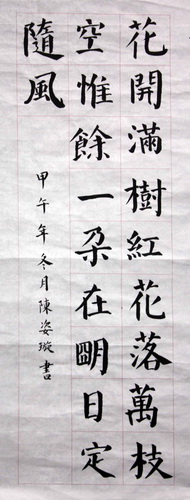 花開滿樹紅花落萬枝
空惟餘一朶在明日定
隨風
甲午年冬月陳姿璇書